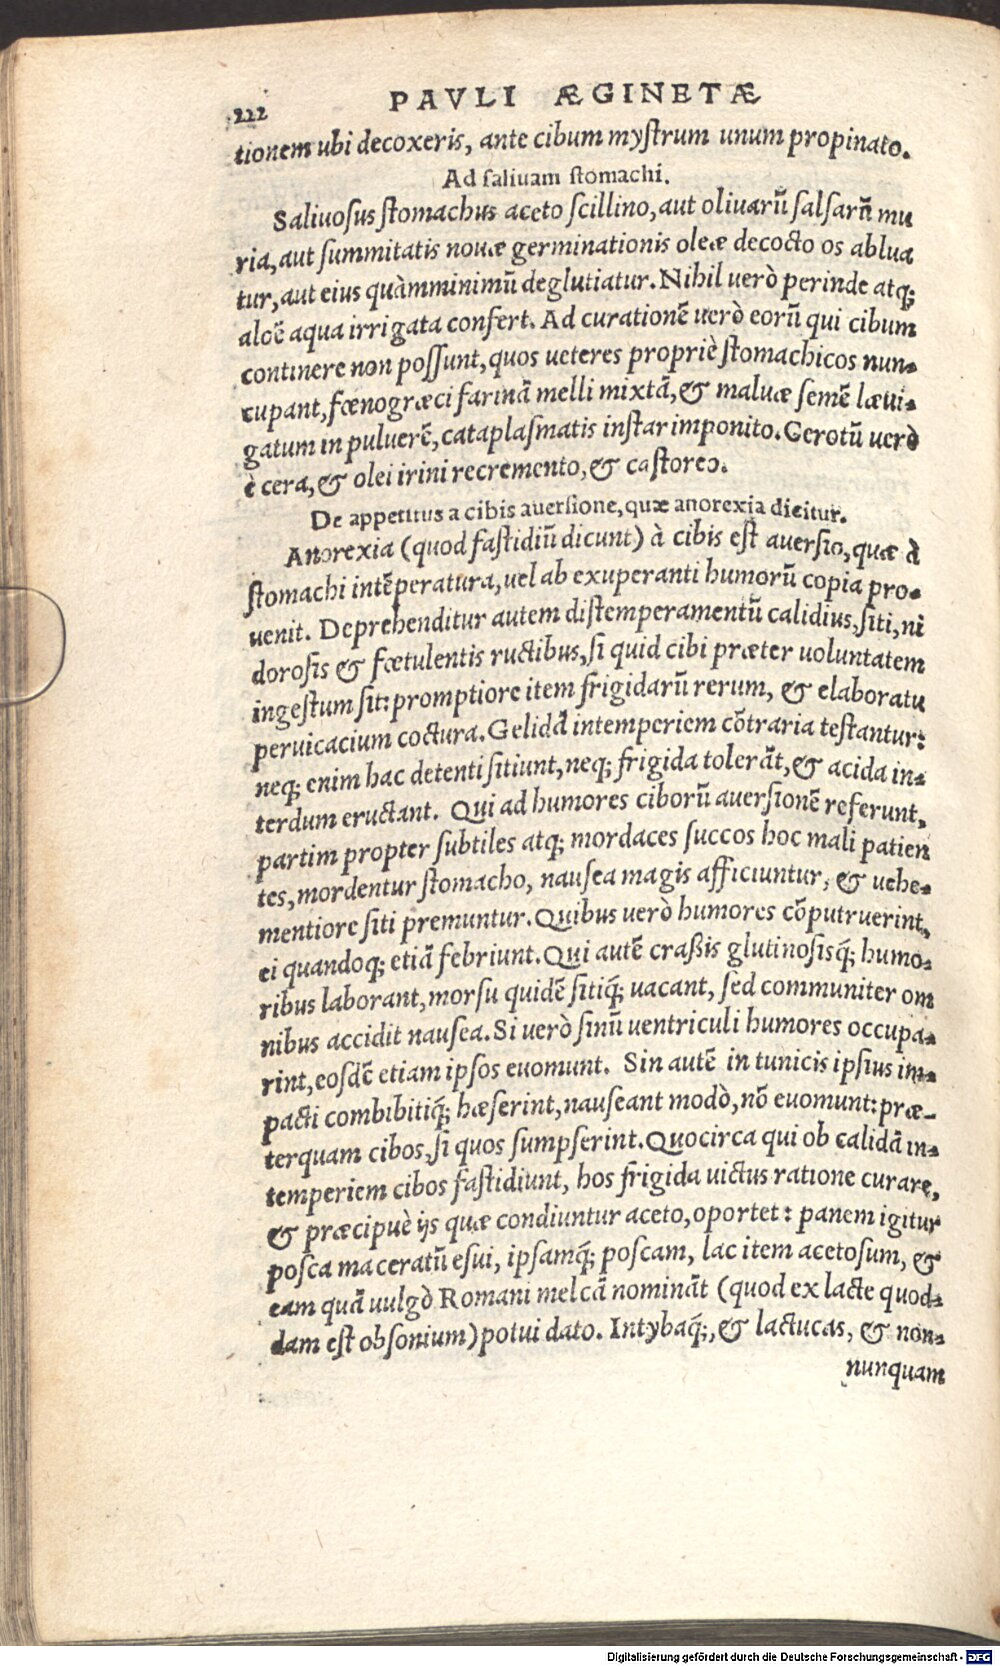 222 PAVLI ÆGINETÆ
tionem ubi decoxeris, ante cibum mystrum unum propinato.
Ad saliuam stomachi.
Saliuosus stomachus aceto scillino, aut oliuarũ salsarũ mu
ria, aut summitatis nouæ germinationis oleæ decocto os ablua
tur, aut eius quàm minimũ deglutiatur. Nihil uerò perinde atq;
aloë aqua irrigata confert. Ad curationẽ uerò eorũ qui cibum
continere non possunt, quos ueteres propriè stomachicos nun-
cupant, fœnogræci farinã melli mixtã, & maluæ semẽ læui-
gatum in puluerẽ, cataplasmatis instar imponito. Cerotũ uerò
è cera, & olei irini recremento, & castoreo.
De appetitus a cibis auersione, quæ anorexia dicitur.
Anorexia (quod fastidiũ dicunt) à cibis est auersio, quæ à
stomachi intẽperatura, uel ab exuperanti humorũ copia pro-
uenit. Deprehenditur autem distemperamentũ calidius, siti, ni
dorosis & fœtulentis ructibus, si quid cibi præter uoluntatem
ingestum sit: promptiore item frigidarũ rerum, & elaboratu
peruicacium coctura. Gelidã intemperiem cõtraria testantur:
neq; enim hac detenti sitiunt, neq; frigida tolerãt, & acida in-
terdum eructant. Qui ad humores ciborũ auersionẽ referunt,
partim propter subtiles atq; mordaces succos hoc mali patien
tes, mordentur stomacho, nausea magis afficiuntur, & uehe-
mentiore siti premuntur. Quibus uerò humores cõputruerint,
ei quandoq; etiã febriunt. Qui autẽ craßis glutinosisq́; humo-
ribus laborant, morsu quidẽ sitiq́; uacant, sed communiter om
nibus accidit nausea. Si uerò sinũ uentriculi humores occupa-
rint, eosdẽ etiam ipsos euomunt. Sin autẽ in tunicis ipsius im-
pacti combibitiq́; hæserint, nauseant modò, nõ euomunt: præ-
terquam cibos, si quos sumpserint. Quocirca qui ob calidã in-
temperiem cibos fastidiunt, hos frigida uictus ratione curare,
& præcipuè ijs quæ condiuntur aceto, oportet: panem igitur
posca maceratũ esui, ipsamq́; poscam, lac item acetosum, &
eam quã uulgò Romani melcã nominãt (quod ex lacte quod-
dam est obsonium) potui dato. Intybaq́;, & lactucas, & non-
nunquam
Digitalisierung gefördert durch die Deutsche Forschungsgemeinschaft - DFG